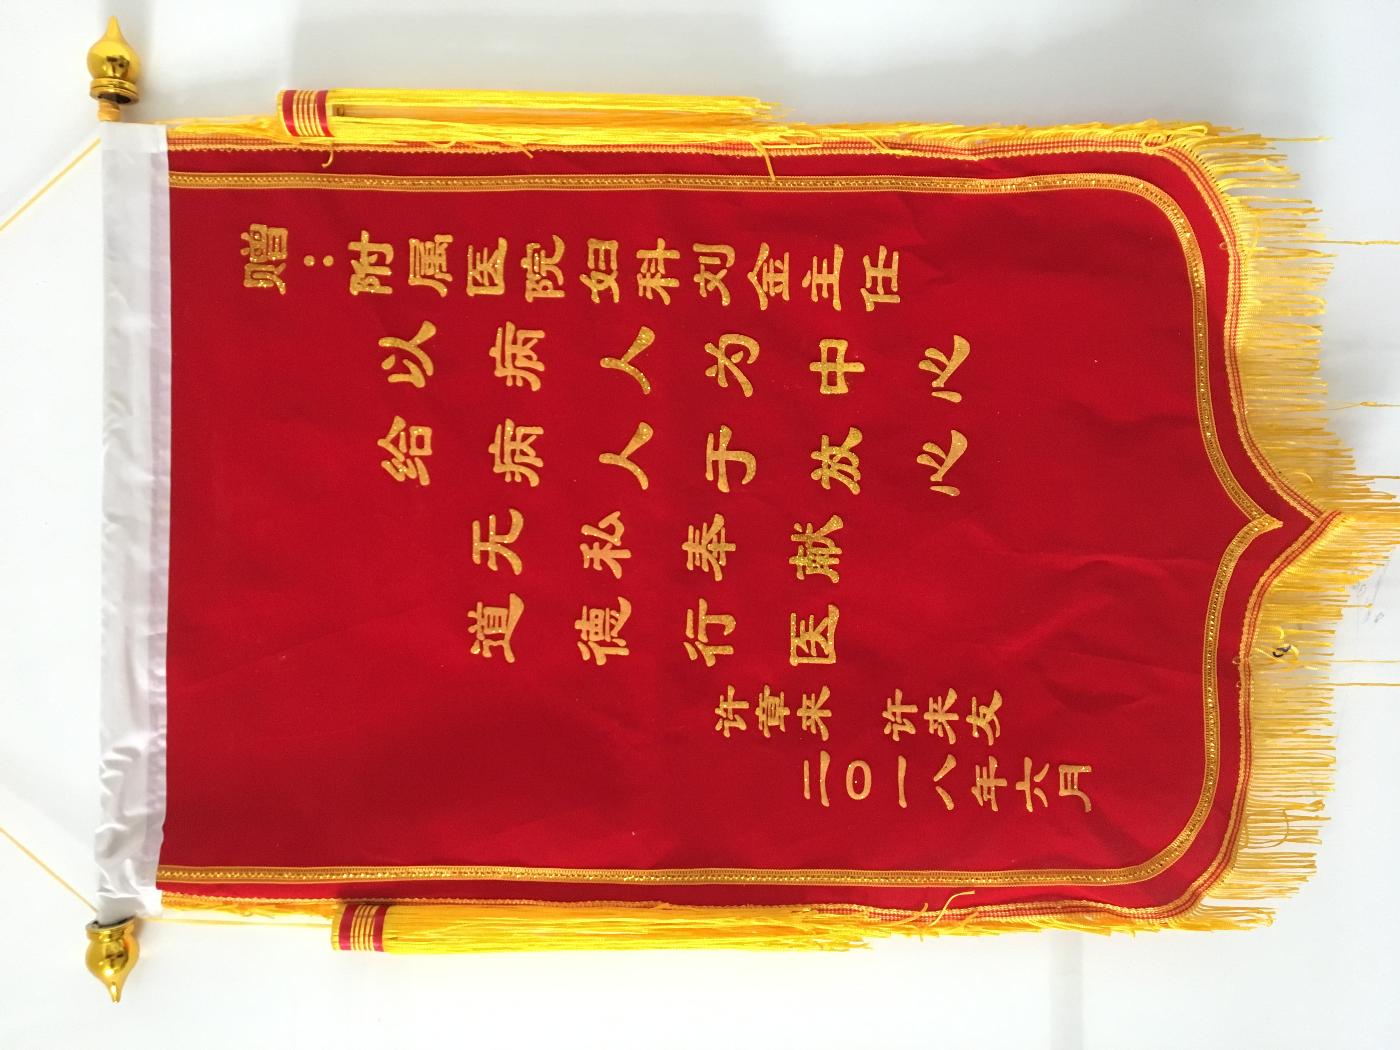 赠：附属医院妇科刘金主任
以病人为中心
给病人于放心
无私奉献
道德行医
许章来 许来友
二〇一八年六月